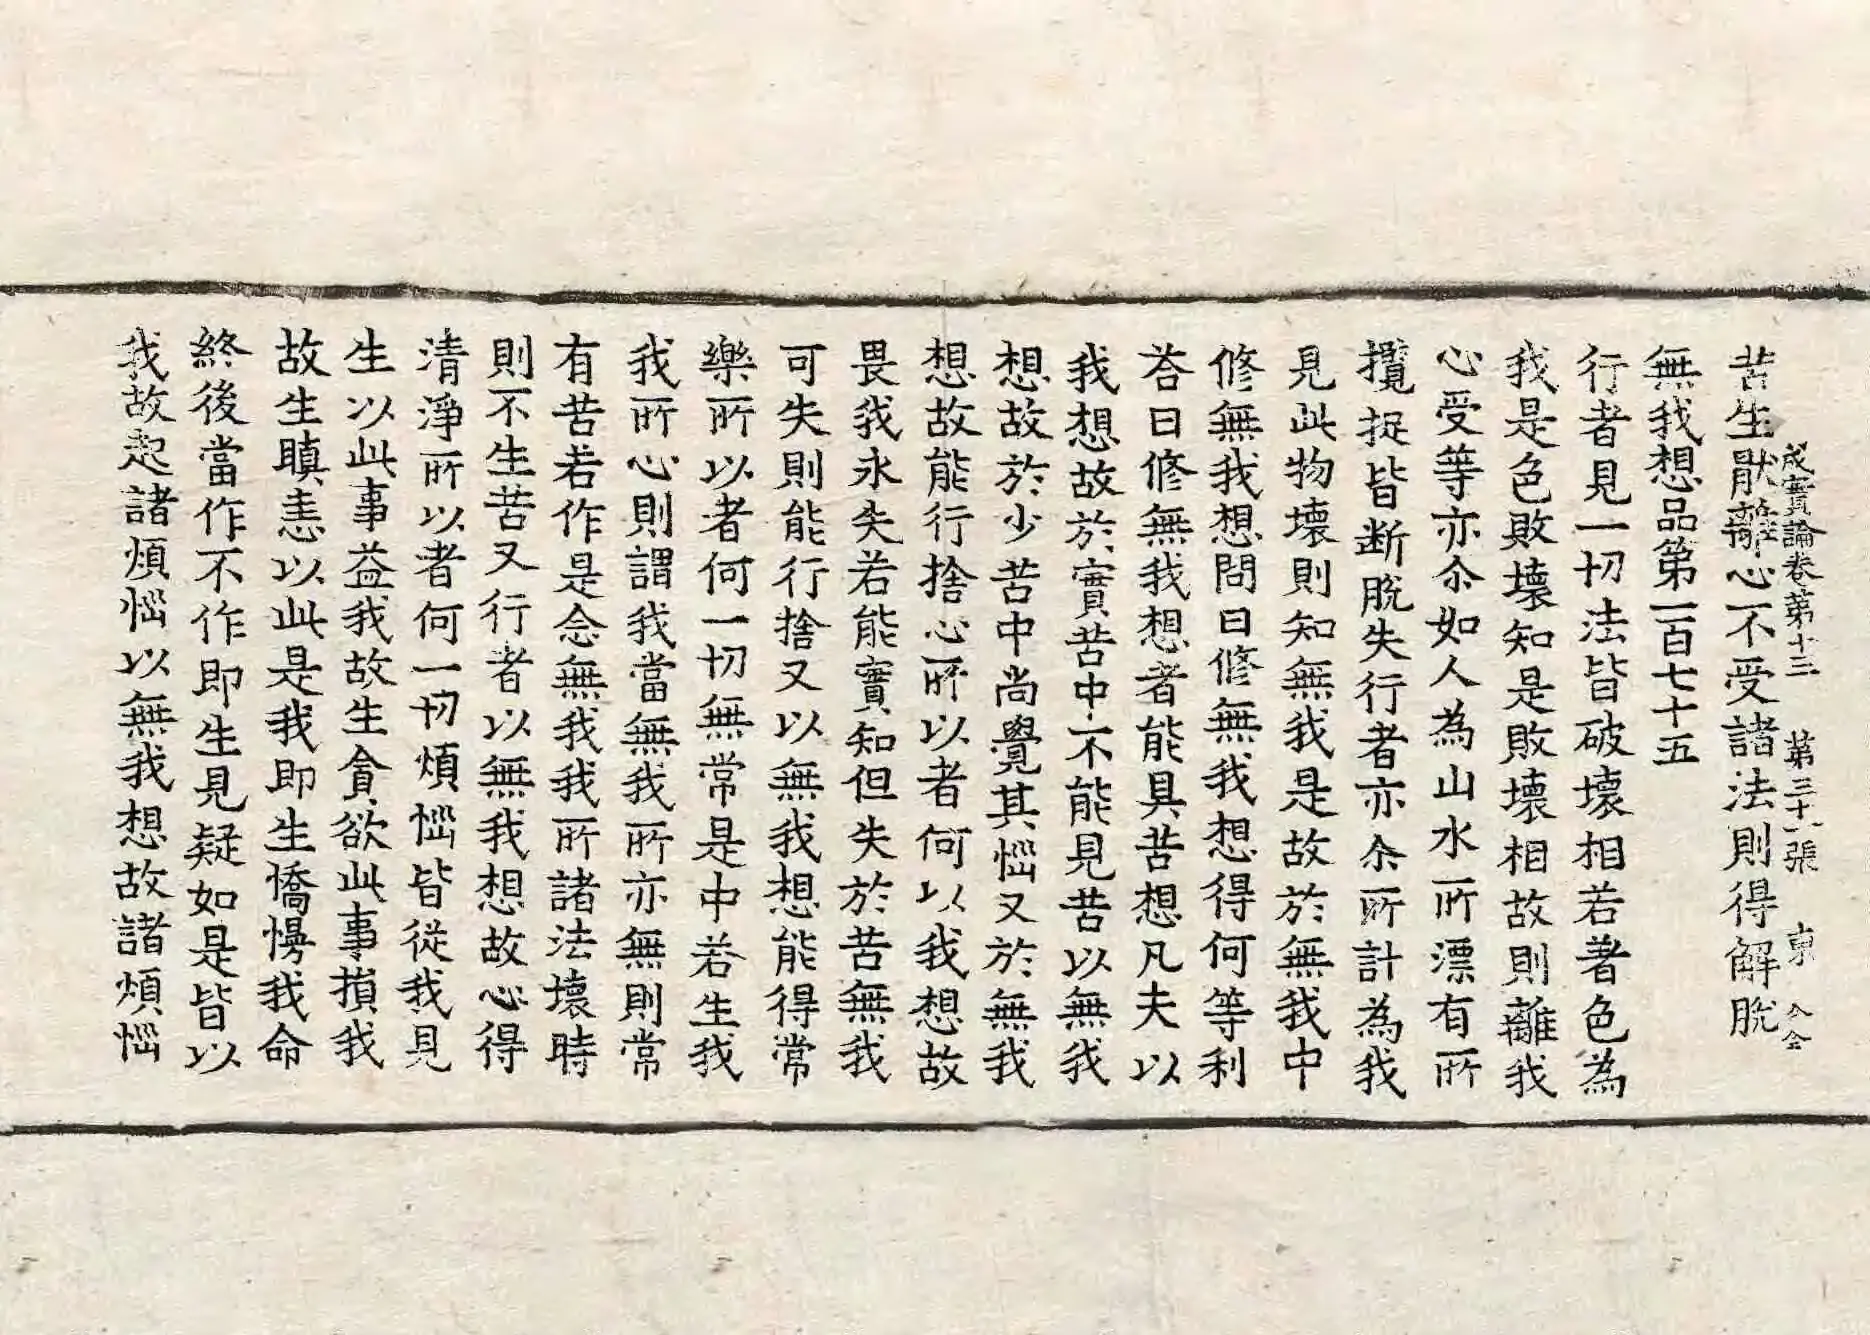 成實論卷第十三 第三十八張 東
苦生猒離心不受諸法則得解脫
無我想品第一百七十五
行者見一切法皆破壞相若著色為
我是色敗壞知是敗壞相故則離我
心受等亦尒如人為山水所漂有所
攬捉皆断脫失行者亦尒所計為我
見此物壞則知無我是故於無我中
修無我想問曰修無我想得何等利
荅曰修無我想者能具苦想凡夫以
我想故於實苦中不能見苦以無我
想故於少苦中尚覺其惱又於無我
想故能行捨心所以者何以我想故
畏我永失若能實知但失於苦無我
可失則能行捨又以無我想能得常
樂所以者何一切無常是中若生我
我所心則謂我當無我所亦無則常
有苦若作是念無我我所諸法壞時
則不生苦又行者以無我想故心得
清淨所以者何一切煩惱皆從我見
生以此事益我故生貪欲此事損我
故生瞋恚以此是我即生憍慢我命
終後當作不作即生見疑如是皆以
我故起諸煩惱以無我想故諸煩惱